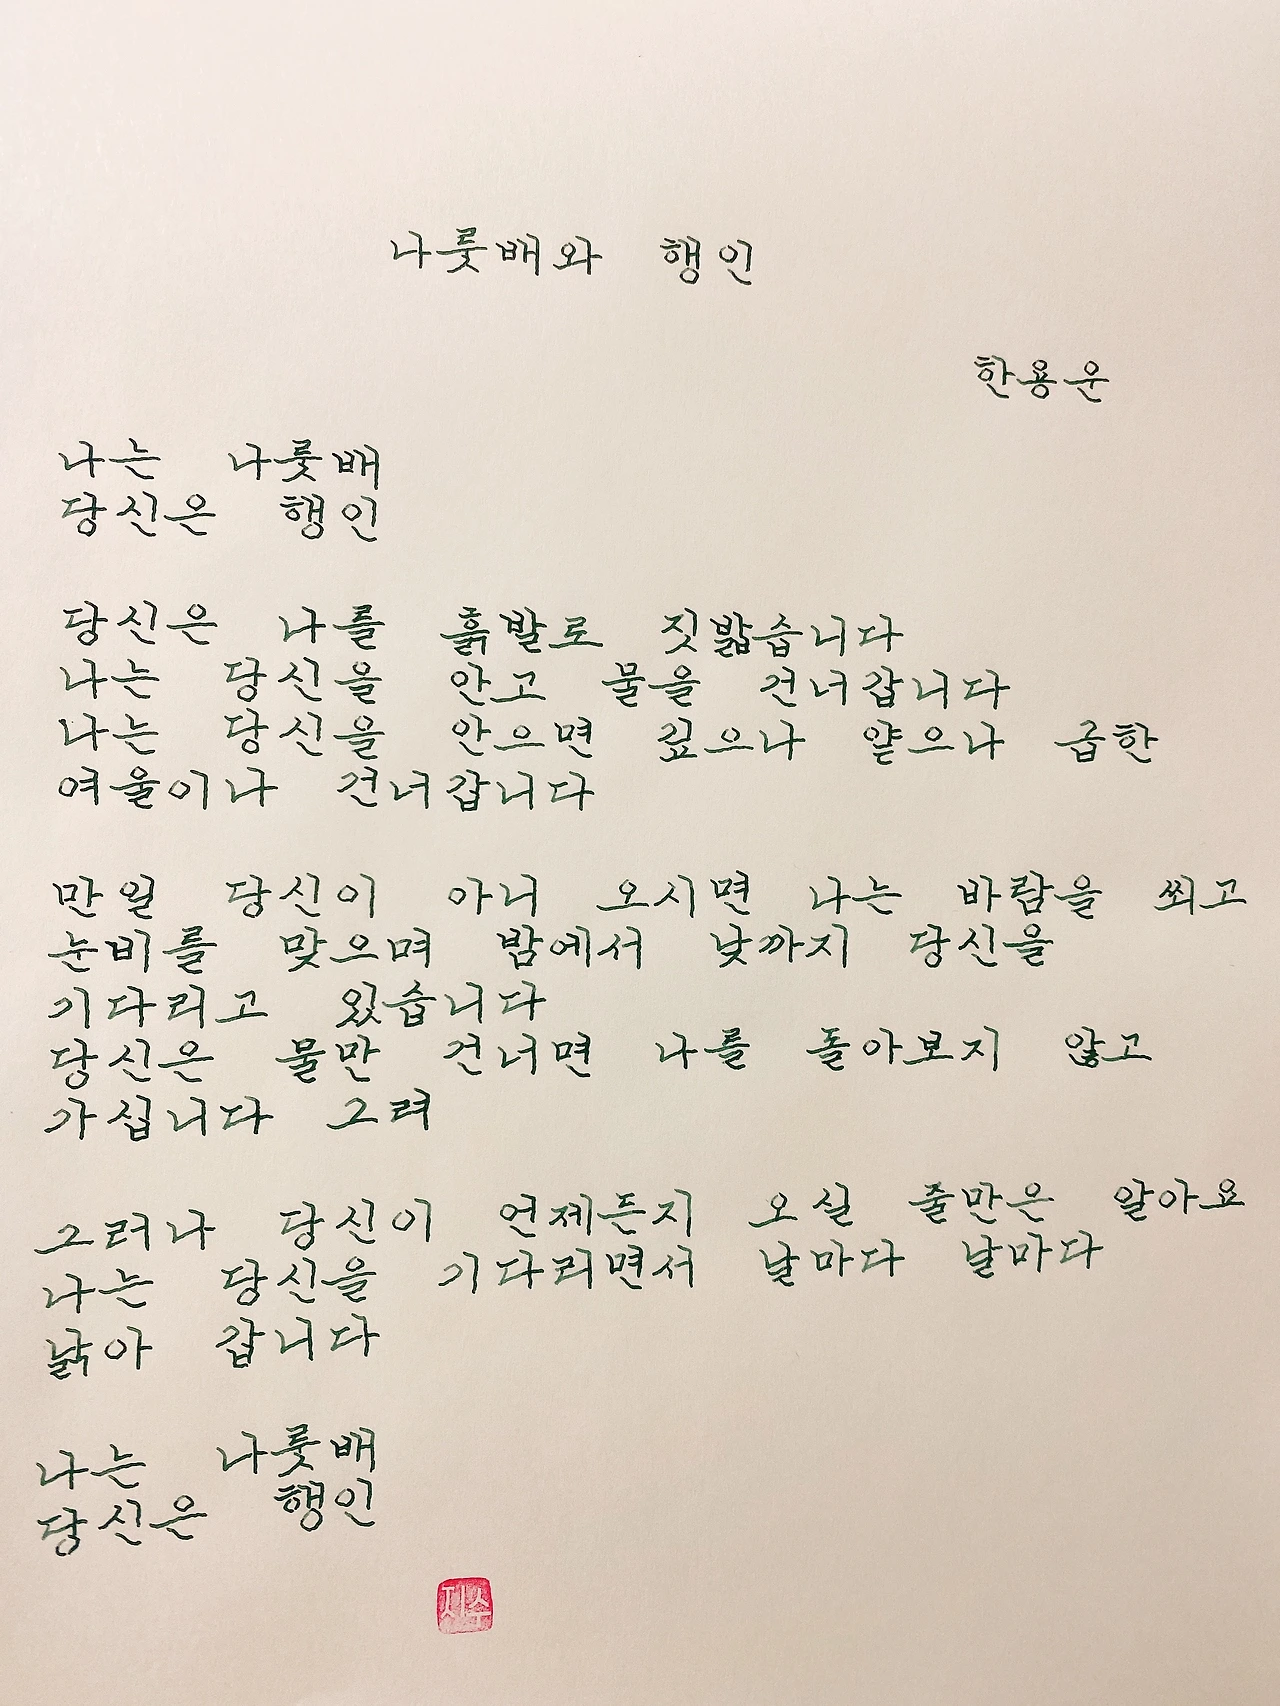 나룻배와 행인
한용운
나는 나룻배
당신은 행인
당신은 나를 흙발로 짓밟습니다
나는 당신을 안고 물을 건너갑니다
나는 당신을 안으면 깊으나 얕으나 급한
여울이나 건너갑니다
만일 당신이 아니 오시면 나는 바람을 쐬고
눈비를 맞으며 밤에서 낮까지 당신을
기다리고 있습니다
당신은 물만 건너면 나를 돌아보지 않고
가십니다 그려
그러나 당신이 언제든지 오실 줄만은 알아요
나는 당신을 기다리면서 날마다 날마다
낡아 갑니다
나는 나룻배
당신은 행인
지수